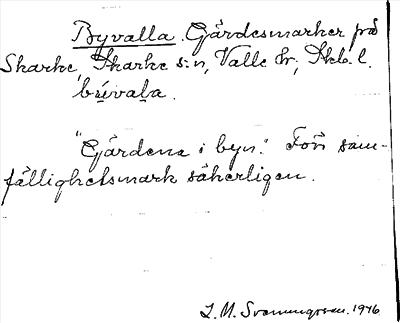 Byvalla. Gärdesmarker på
Skarke, Skarke s:n, Valle hr, Skb. l.
bývala.
"Gärdena i byn". Förr sam-
fällighetsmark säkerligen.
L. M. Svenungsson. 1946